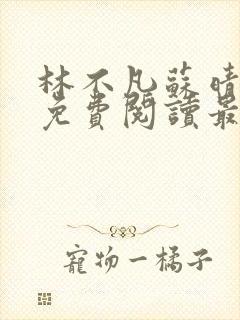 林不凡蘇晴
免費閱讀最
寵物一橘子